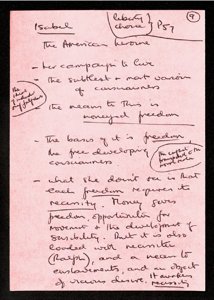 9
Isabel
liberty
choice
P57
The American heroine
- her campaign to live
- The subtlest + most various
of consciousness
The means to this is
moneyed freedom
- The basis of it is freedom
the free developing
consciousness
- what she doesn't see is that
each freedom requires its
necessity. Money gives
freedom, opportunities for
movement + the development of
sensibility. But it is also
loaded with necessities
(Ralph), and a means to
enslavement, and an object
of vicious desire. It enforces
necessity.